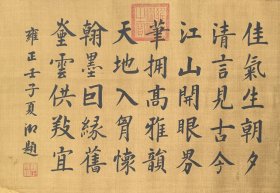 佳氣生朝夕
清言見古今
江山開眼界
筆拥高雅韻
天地入胷懐
翰墨囙縁舊
雲供宜
雍正壬子夏題